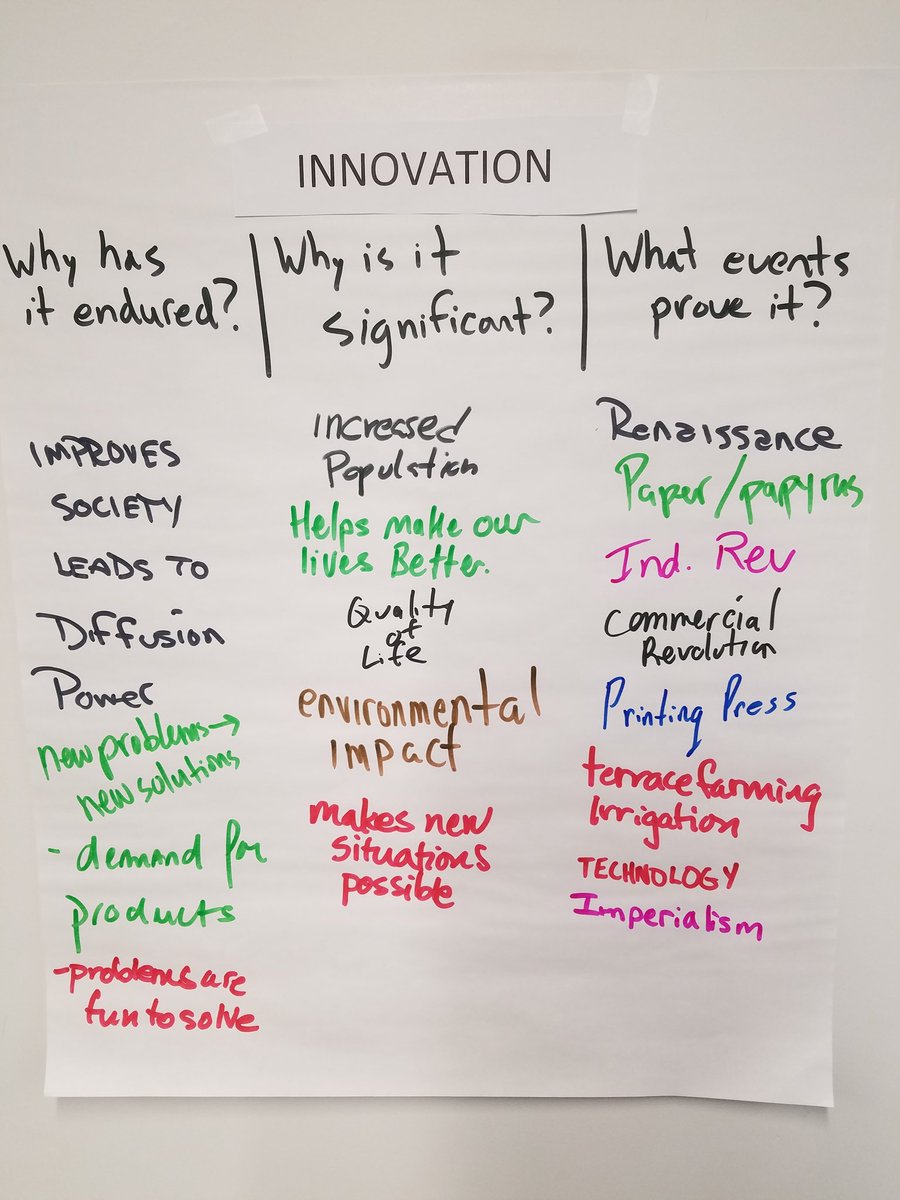 INNOVATION
Why has
it endured?
IMPROVES
SOCIETY
LEADS TO
Diffusion
Power
new problems→
new solutions
- demand for
products
-problems are
fun to solve
Why is it
significant?
Increased
Population
Helps make our
lives Better.
Quality
of
Life
environmental
impact
makes new
situations
possible
What events
prove it?
Renaissance
Paper/papyrus
Ind. Rev
Commercial
Revolution
Printing Press
terrace farming
Irrigation
TECHNOLOGY
Imperialism